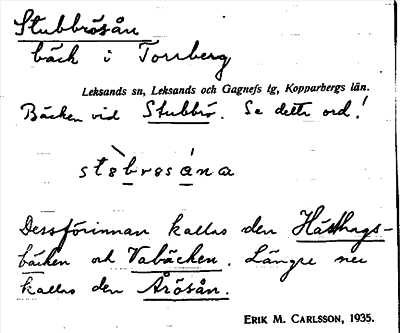 Stubbrösån
bäck i Torrberg
Leksands sn, Leksands och Gagnefs tg, Kopparbergs län.
Bäcken vid Stubbrö. Se detta ord!
Dessförinnan kallas den Hästhags-
bäcken och Vabäcken. Längre ner
kallas den Årösån.
ERIK M. CARLSSON, 1935.